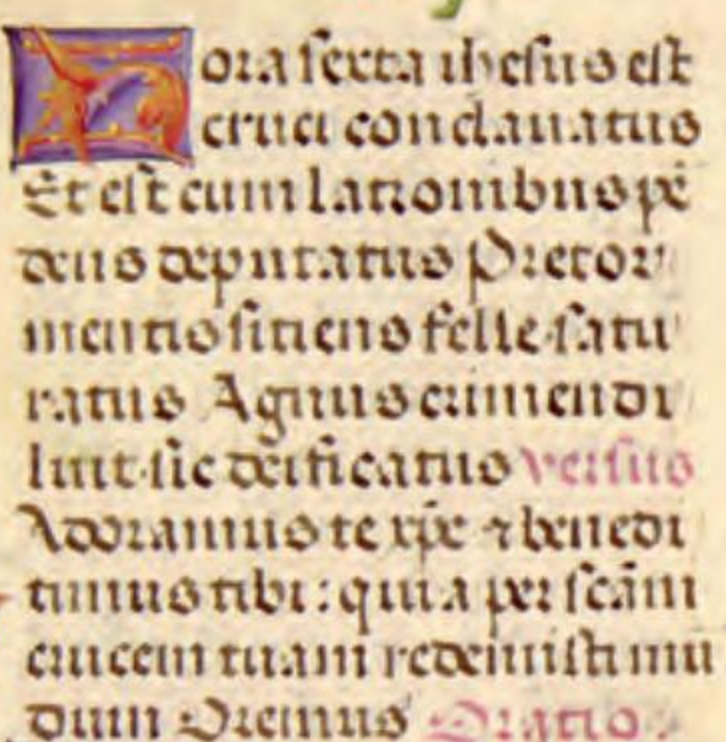 Hora sexta ihesus est
cruci conclauatus
Et est cum latronibus pē
dens deputatus Pre tor
mentis sitiens felle satu
ratus Agnus crimen di
luit sic deificatus versus
Adoramus te xp̄e ⁊ benedi
cimus tibi: quia per scām
crucem tuam redemisti mū
dum Oremus Oratio